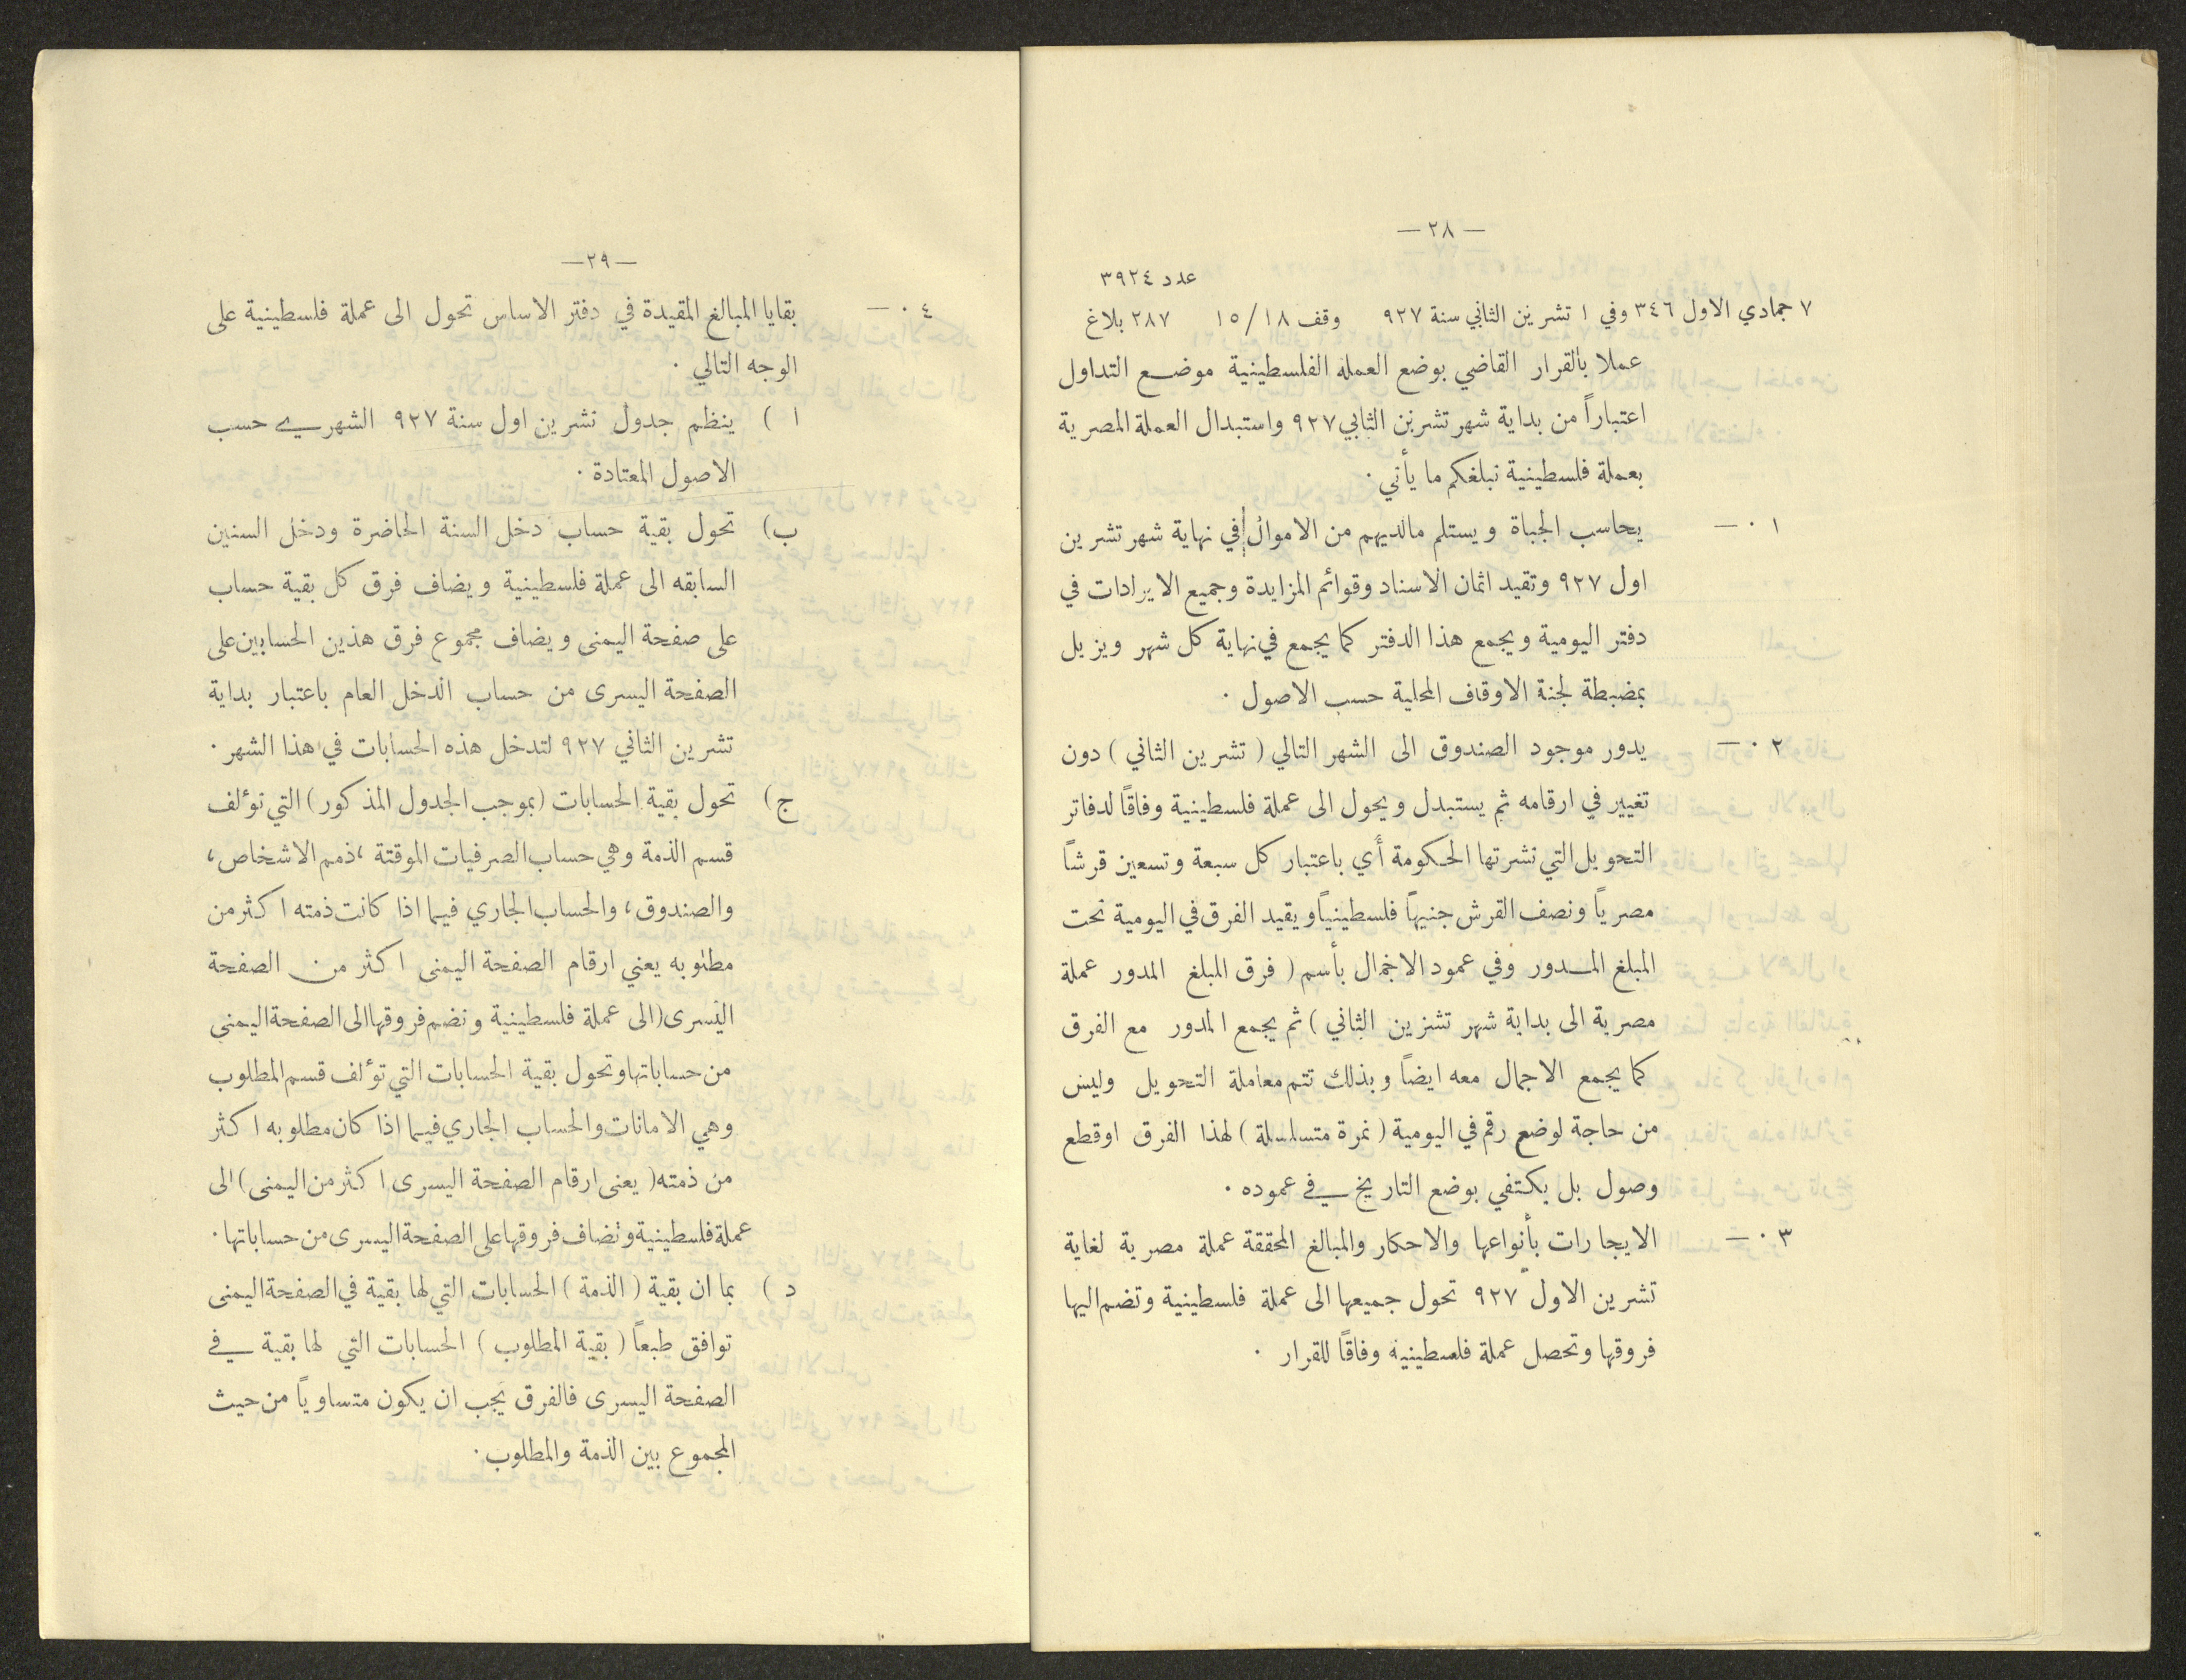 — ٢٨ —
عدد ٣٩٢٤
٧ جمادي الاول ٣٤٦ وفي ١ تشرين الثاني سنة ٩٢٧ وقف ١٨/ ١٥ ٢٨٧ بلاغ
عملا بالقرار القاضي بوضع العمله الفلسطينية موضع التداول
اعتباراً من بداية شهر تشرين الثاني ٩٢٧ واستبدال العملة المصرية
بعملة فلسطينية نبلغكم ما يأتي ٠
٠١ — يحاسب الجباة ويستلم مالديهم من الاموال في نهاية شهر تشرين
اول ٩٢٧ وتقيد اثمان الاسناد وقوائم المزايدة وجميع الايرادات في
دفتر اليومية ويجمع هذا الدفتر كما يجمع في نهاية كل شهر ويزيل
بمضبطة لجنة الاوقاف المحلية حسب الاصول ٠
٠٢ — يدور موجود الصندوق الى الشهر التالي ( تشرين الثاني ) دون
تغيير في ارقامه ثم يستبدل ويحول الى عملة فلسطينية وفاقاً لدفاتر
التحويل التي نشرتها الحكومة أي باعتبار كل سبعة وتسعين قرشاً
مصرياً ونصف القرش جنيهاً فلسطينياً ويقيد الفرق في اليومية تحت
المبلغ المدور وفي عمود الاجمال بأسم ( فرق المبلغ المدور عملة
مصرية الى بداية شهر تشرين الثاني ) ثم يجمع المدور مع الفرق
كما يجمع الاجمال معه ايضاً وبذلك تتم معاملة التحويل وليس
من حاجة لوضع رقم في اليومية ( نمرة متسلسلة ) لهذا الفرق اوقطع
وصول بل يكتفي بوضع التاريخ في عموده ٠
٠٣ — الايجارات بأنواعها والاحكار والمبالغ المحققة عملة مصرية لغاية
تشرين الاول ٩٢٧ تحول جميعها الى عملة فلسطينية وتضم اليها
فروقها وتحصل عملة فلسطينية وفاقاً للقرار ٠
—٢٩—
٠٤ — بقايا المبالغ المقيدة في دفتر الاساس تحول الى عملة فلسطينية على
الوجه التالي ٠
ا ) ينظم جدول تشرين اول سنة ٩٢٧ الشهري حسب
الاصول المعتادة ٠
ب) تحول بقية حساب دخل السنة الحاضرة ودخل السنين
السابقه الى عملة فلسطينية ويضاف فرق كل بقية حساب
على صفحة اليمنى ويضاف مجموع فرق هذين الحسابين على
الصفحة اليسرى من حساب الدخل العام باعتبار بداية
تشرين الثاني ٩٢٧ لتدخل هذه الحسابات في هذا الشهر ٠
ج) تحول بقية الحسابات (بموجب الجدول المذكور) التي تؤلف
قسم الذمة وهي حساب الصرفيات الموقتة ، ذمم الاشخاص ،
والصندوق ، والحساب الجاري فيما اذا كانت ذمته اكثر من
مطلوبه يعني ارقام الصفحة اليمنى اكثر من الصفحة
اليسرى (الى عملة فلسطينية وتضم فروقها الى الصفحة اليمنى
من حساباتها وتحول بقية الحسابات التي تؤلف قسم المطلوب
وهي الامانات والحساب الجاري فيما اذا كان مطلوبه اكثر
من ذمته ( يعني ارقام الصفحة اليسرى اكثر من اليمنى ) الى
عملة فلسطينية وتضاف فروقها على الصفحة اليسرى من حساباتها ٠
د ) بما ان بقية ( الذمة ) الحسابات التي لها بقية في الصفحة اليمنى
توافق طبعاً ( بقية المطلوب ) الحسابات التي لها بقية في
الصفحة اليسرى فالفرق يجب ان يكون متساوياً من حيث
المجموع بين الذمة والمطلوب ٠